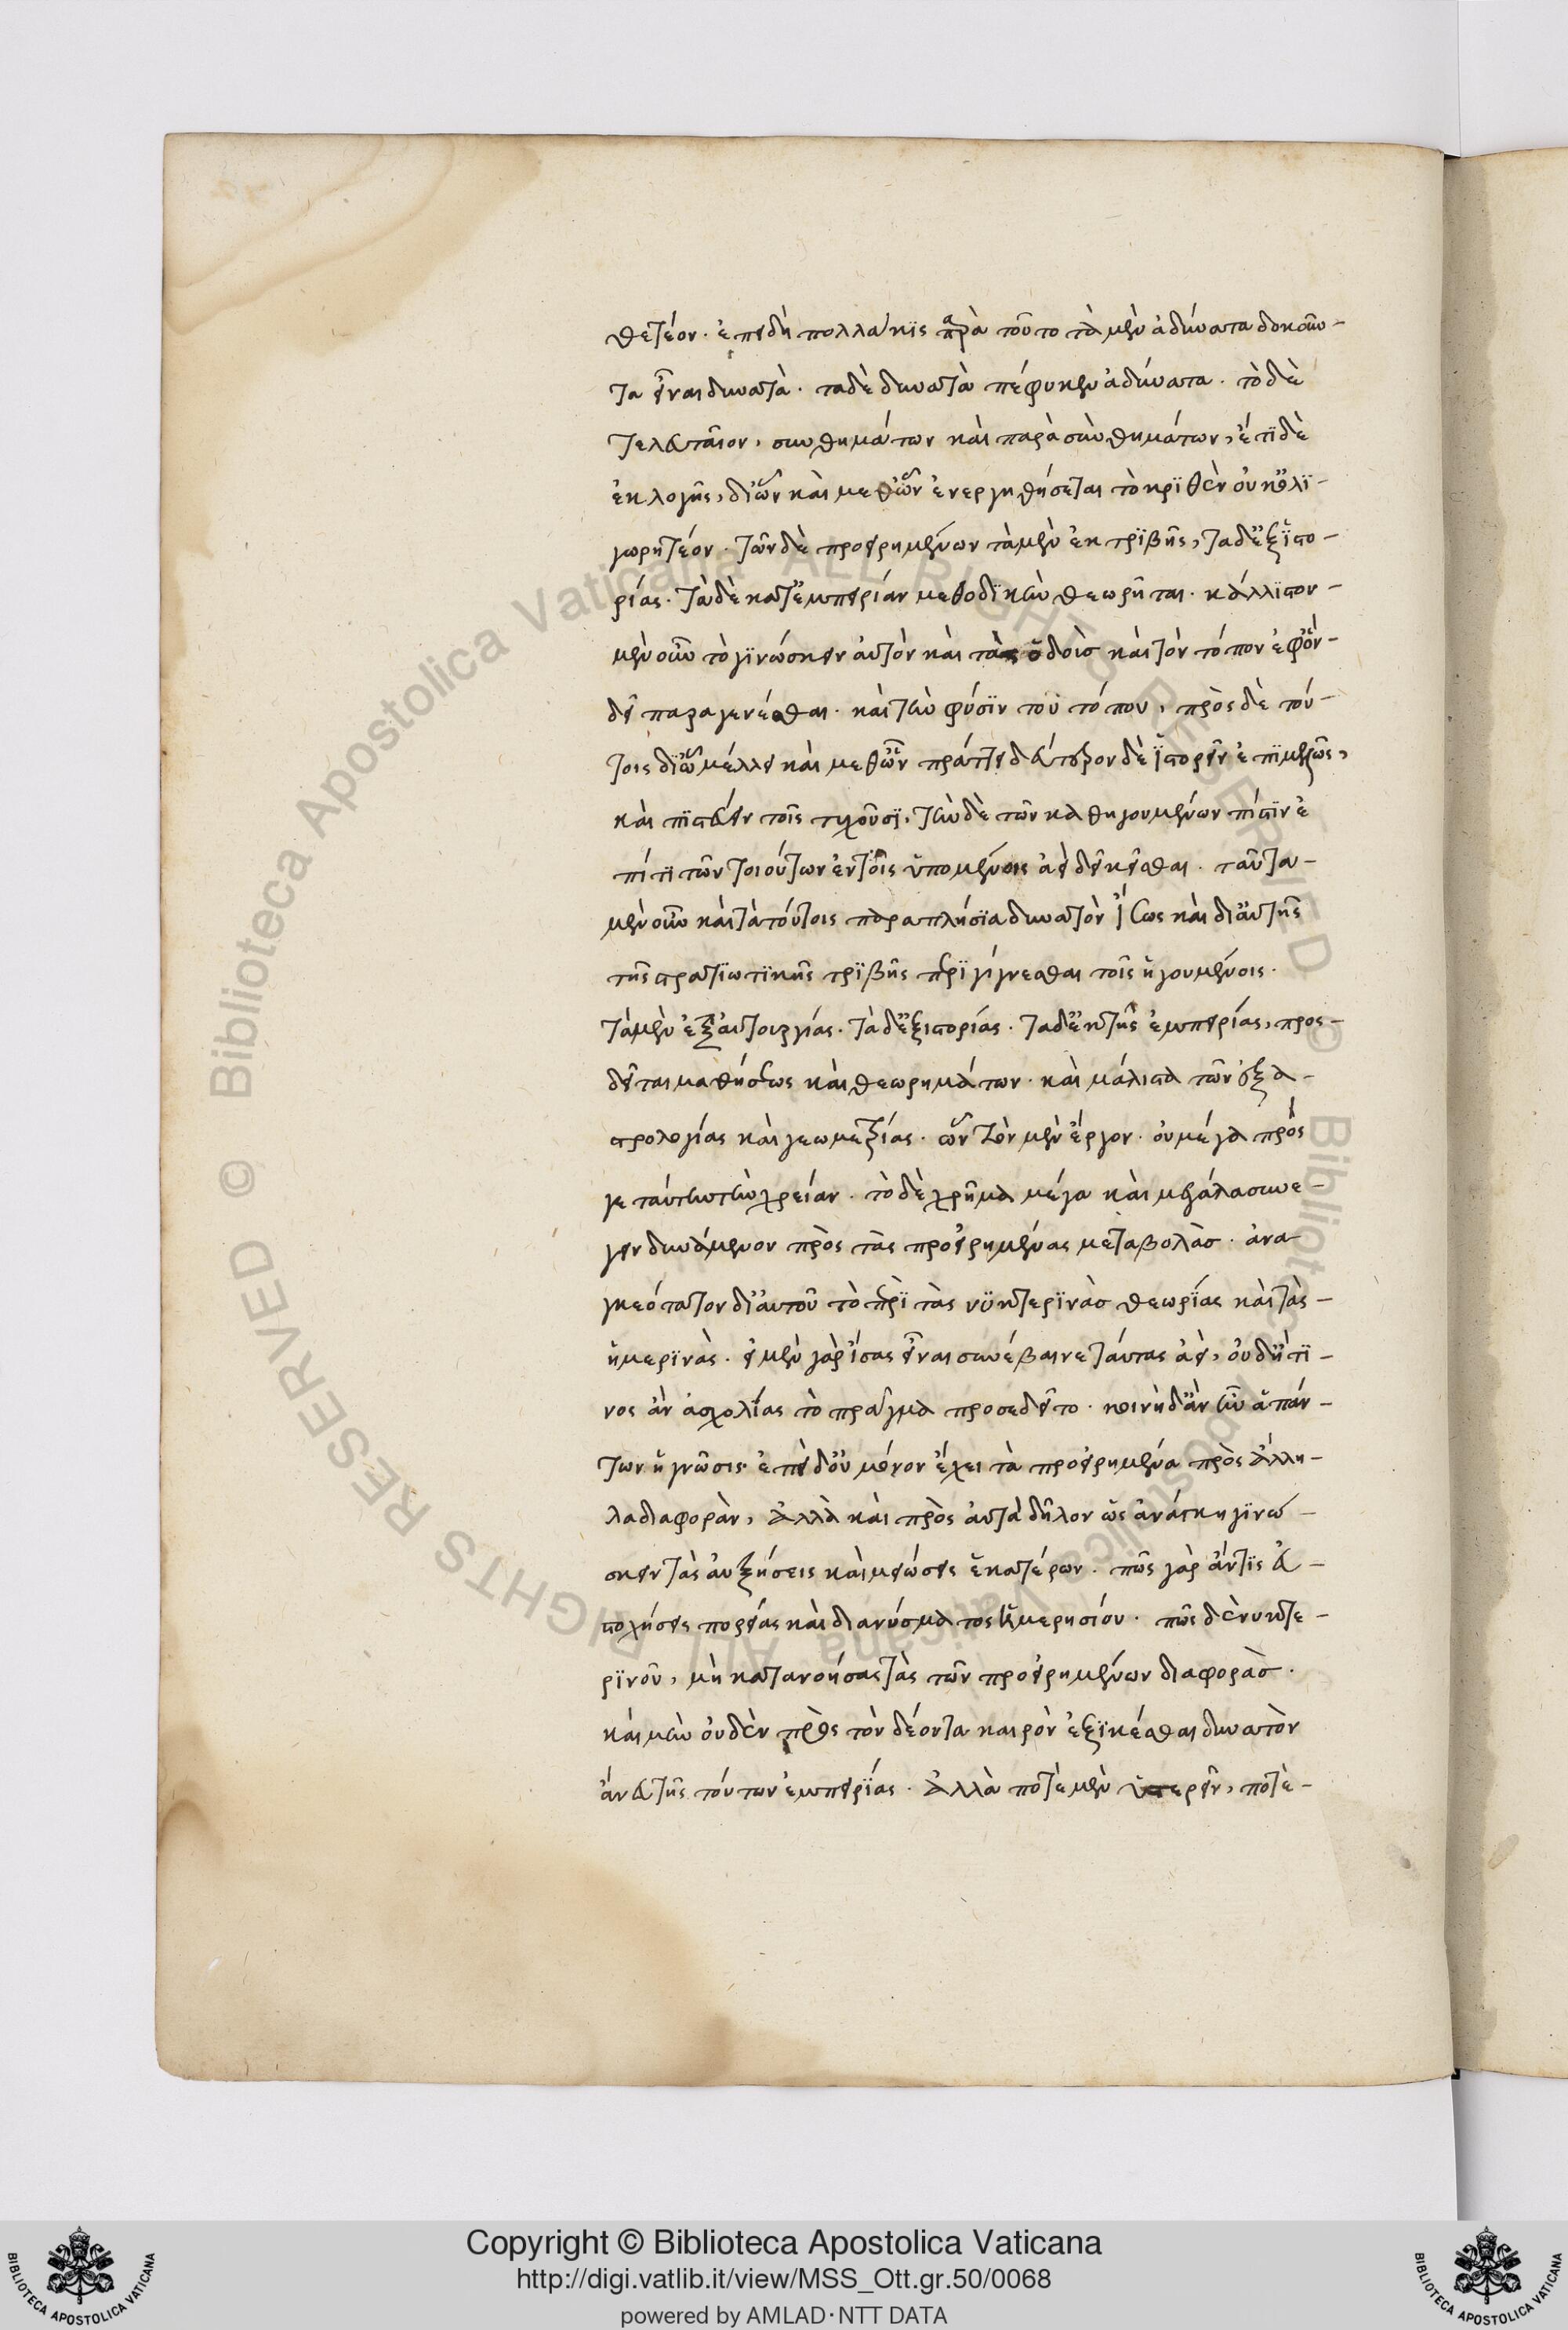 θετέον· ἐπειδὴ πολλάκϊς παρὰ τοῦτο τὰ μὲν ἀδύνατα δοκοῦν-
τα εἶναι δυνατὰ· τὰ δὲ δυνατὰ πέφυκεν ἀδύνατα· τὸ δὲ
τελευταῖον, συνθημάτων καὶ παρὰ συνθημάτων, ἔτϊ δὲ
ἐκλογῆς, δϊ ὧν καὶ μεθ ὧν ἐνεργηθήσεται τὸ κρϊθὲν οὐκ ὀλϊ-
γωρητέον· τῶν δὲ προειρημένων τὰ μὲν ἐκ τρϊβῆς, τὰ δ ἐξ ϊστο-
ρίας· τὰ δὲ κατ ἐμπειρίαν μεθοδϊκὴν θεωρῆται· κάλλϊστον-
μὲν οὖν τὸ γϊνώσκειν αὐτὸν καὶ τὰς ὁδοὺσ καὶ τὸν τόπον ἐφ ὃν-
δεῖ παραγενέσθαι· καὶ τὴν φύσϊν τοῦ τόπου, πρὸς δὲ τού-
τοις δϊ ὧν μέλλει καὶ μεθ ὧν πράττει δεύτερον δὲ ϊστορεῖν ἐπϊμελῶς,
καὶ πϊστεύειν τοῖς τυχοῦσϊ, τὴν δὲ τῶν καθηγουμένων πίστϊν ἐ
πί τϊ τῶν τοιούτων ἐν τοῖς ὑπομένοις ἀεὶ δεῖ κεῖσθαι· ταῦτα-
μὲν οὖν καὶ τὰ τούτοις παραπλήσϊα δυνατὸν ἴσως καὶ δϊ αὐτῆς
τῆς στρατϊωτϊκῆς τρϊβῆς περϊγίγνεσθαι τοῖς ἡγουμένοις·
τὰ μὲν ἐξ αὐτουργίας· τὰ δ ἐξ ιστορίας· τὰ δ ἐκ τῆς ἐμπειρίας, προσ-
δεῖται μαθήσεως καὶ θεωρημάτων· καὶ μάλιστα τῶν ἐξ ἀ-
στρολογίας καὶ γεωμετρίας· ὧν τὸν μὲν ἔργον· οὐ μέγα πρός
γε ταύτην τὴν χρείαν· τὸ δὲ χρῆμα μέγα καὶ μεγάλα συνε-
γειν δυνάμενον πρὸς τὰς προειρημένας μεταβολὰσ· ἀνα
γκεότατον δϊ αὐτοῦ τὸ περὶ τὰς νϋκτερϊνὰσ θεωρίας καὶ τὰς-
ἡμερϊνὰς· εἰ μὲν γὰρ ἴσας εἶναι συνέβαινε ταύτας ἀεὶ, οὐδ ἥ τϊ-
νος ἂν ἀσχολίας τὸ πρᾶγμα προσεδεῖτο· κοινὴ δ ἂν ἦν ἁπάν-
των ἡ γνῶσις ἐπεὶ δ οὐ μόνον ἔχει τὰ προειρημένα πρὸς ἄλλη-
λα διαφορὰν, ἀλλὰ καὶ πρὸς αὐτὰ δῆλον ὡς ἀνάγκη γϊνώ-
σκειν τὰς αὐξήσεις καὶ μειώσεις ἑκατέρων· πῶς γὰρ ἄν τϊς εὐ-
στοχήσεις πορείας καὶ διανύσματος ἡμερησίου· πῶς δὲ νυκτε-
ρϊνοῦ, μὴ κατανοήσας τὰς τῶν προειρημένων διαφορὰσ·
καὶ μὴν οὐδὲν πρὸς τὸν δέοντα καιρὸν ἐξϊκέσθαι δυνατὸν
ἄνευ τῆς τούτων ἐμπειρϊας· ἀλλὰ ποτὲ μὲν ὑστερεῖν, ποτὲ-
Copyright © Biblioteca Apostolica Vaticana
http://digi.vatlib.it/view/MSS_Ott.gr.50/0068
powered by AMLAD·NTT DATA